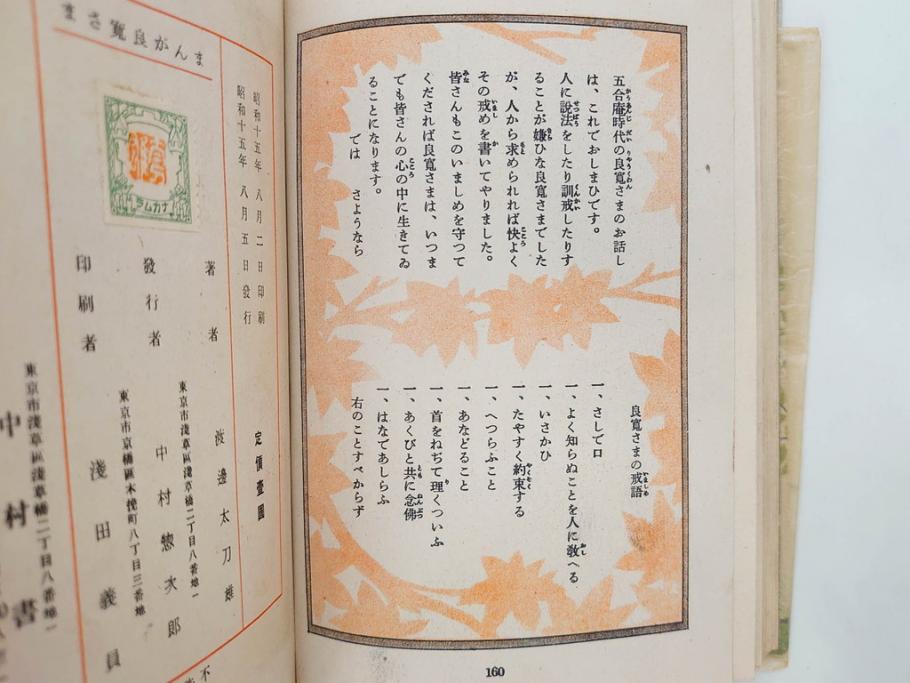 五合庵時代の良寛さまのお話し
は、これでおしまひです。
人に説法をしたり訓戒したりす
ることが嫌ひな良寛さまでした
が、人から求められれば快よく
その戒めを書いてやりました。
皆さんもこのいましめを守つて
くだされば良寛さまは、いつま
でも皆さんの心の中に生きてゐ
ることになります。
では さようなら
良寛さまの戒語
一、さしで口
一、よく知らぬことを人に敎へる
一、いさかひ
一、たやすく約束する
一、へつらふこと
一、あなどること
一、首をねぢて理くついふ
一、あくびと共に念佛
一、はなであしらふ
右のことすべからず
160
まんが良寛さま
昭和十五年 八月二日印刷
昭和十五年 八月五日發行
定價壹圓
著者 渡邊太刀雄
東京市淺草區淺草橋二丁目八番地
發行者 中村惣次郎
東京市京橋區木挽町八丁目三番地
印刷者 淺田義員
東京市淺草區淺草橋二丁目八番地
中村書
ナカムラ
不